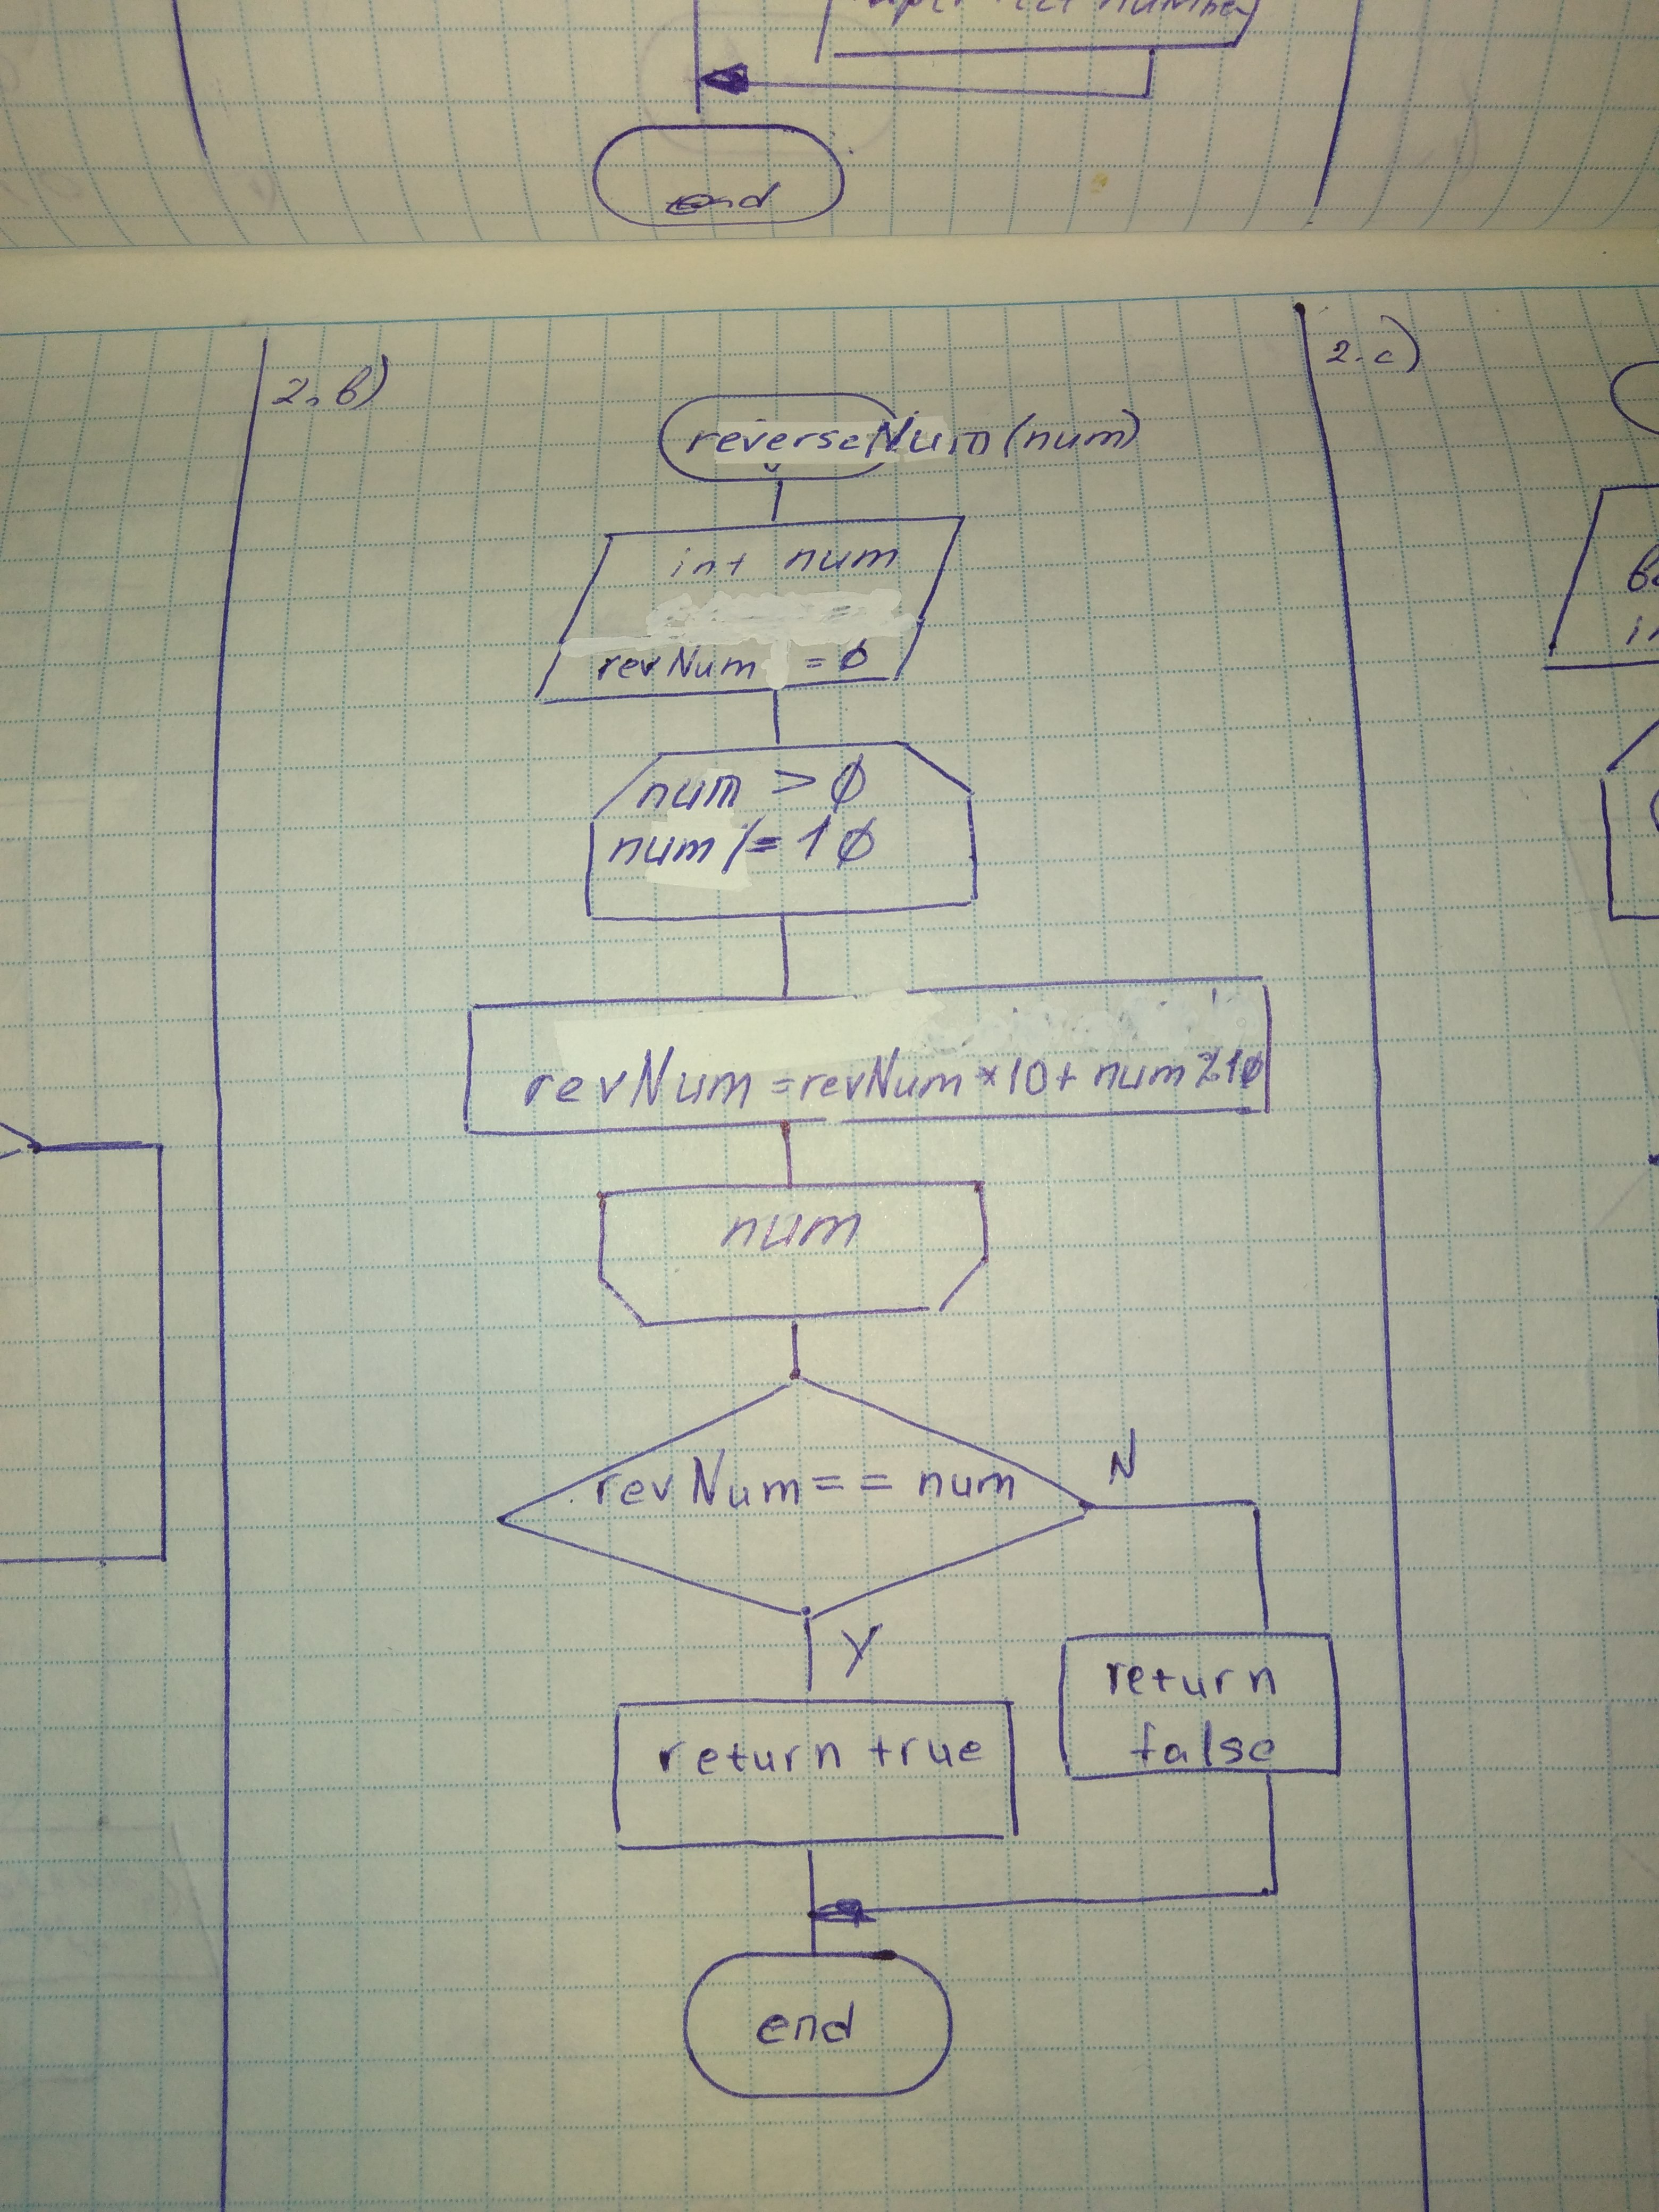 number
end
2. b)
2. c)
reverseNum(num)
int num
revNum = 0
num > 0
num /= 10
revNum = revNum * 10 + num % 10
num
revNum == num
N
Y
return
false
return true
end